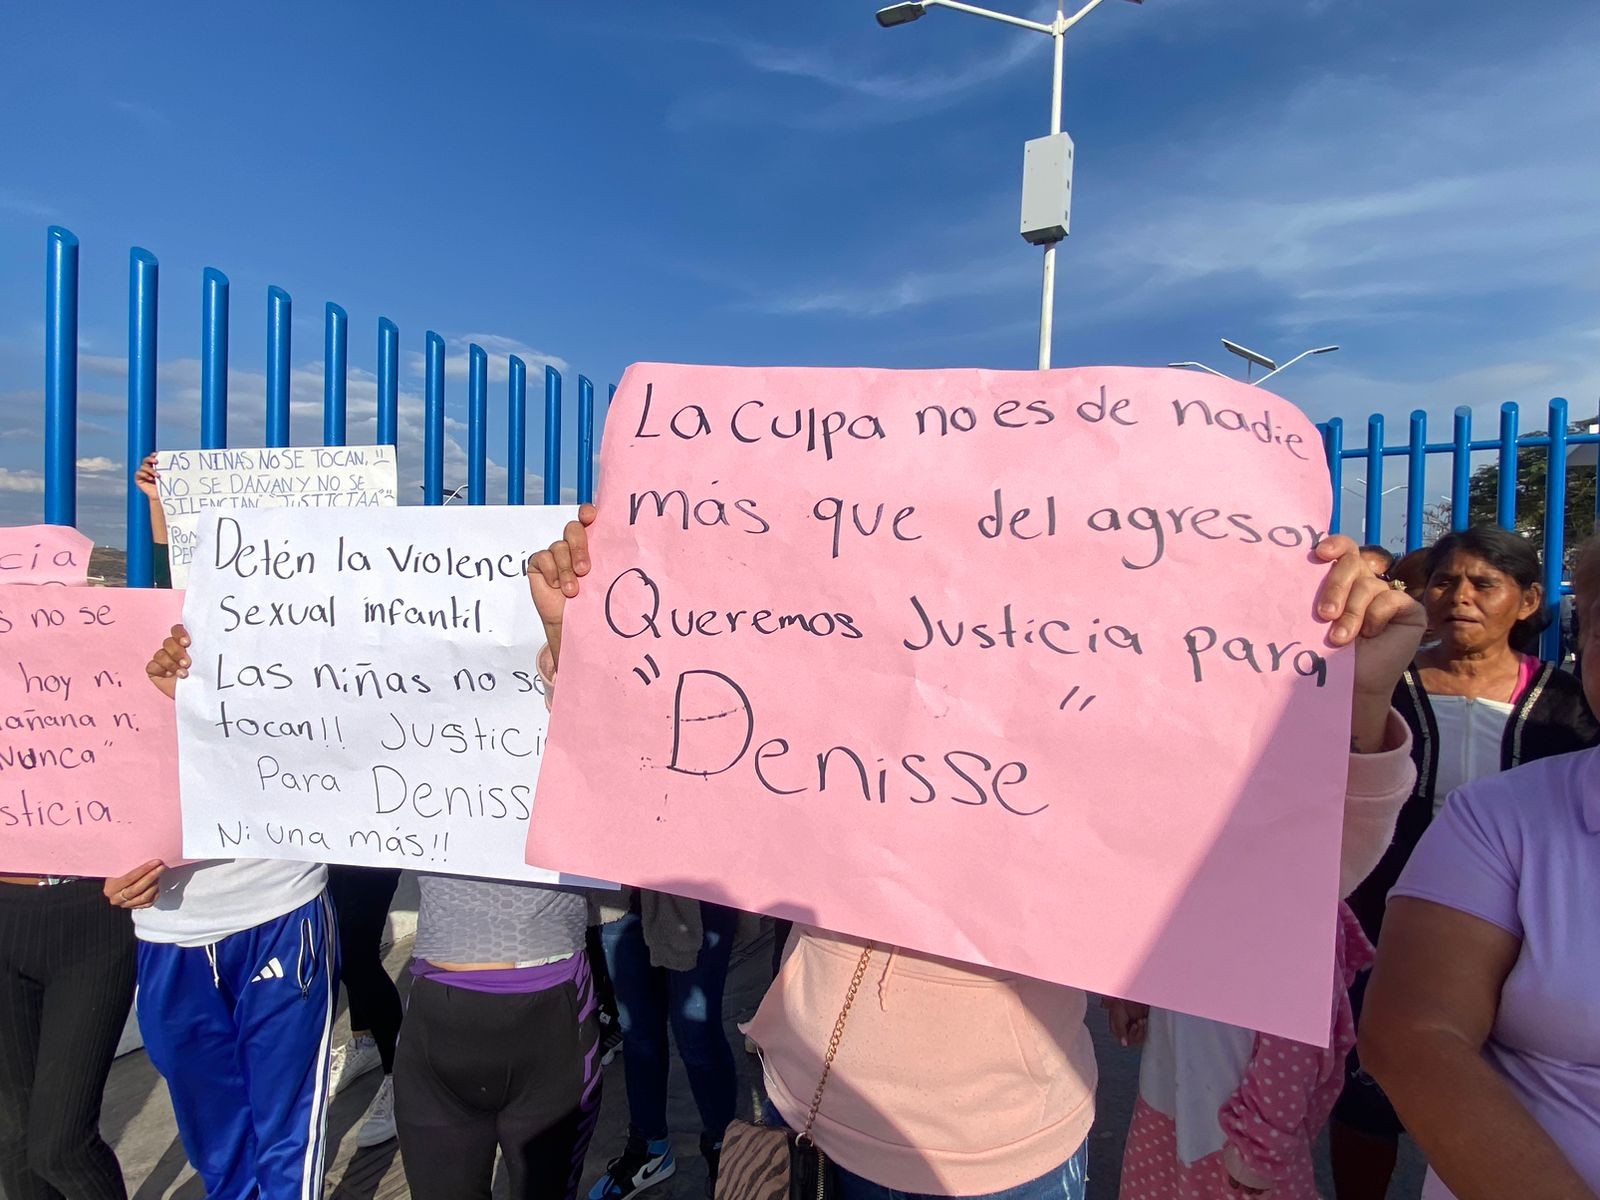 LAS NIÑAS NO SE TOCAN,
NO SE DAÑAN Y NO SE
SILENCIAN" "JUSTICIAA"
cia
s no se
hoy ni
añana ni
Nunca"
sticia..
Detén la violenci
sexual infantil.
Las niñas no se
tocan!! Justici
Para Deniss
Ni una más!!
La culpa no es de nadie
más que del agresor
Queremos Justicia para
"Denisse"